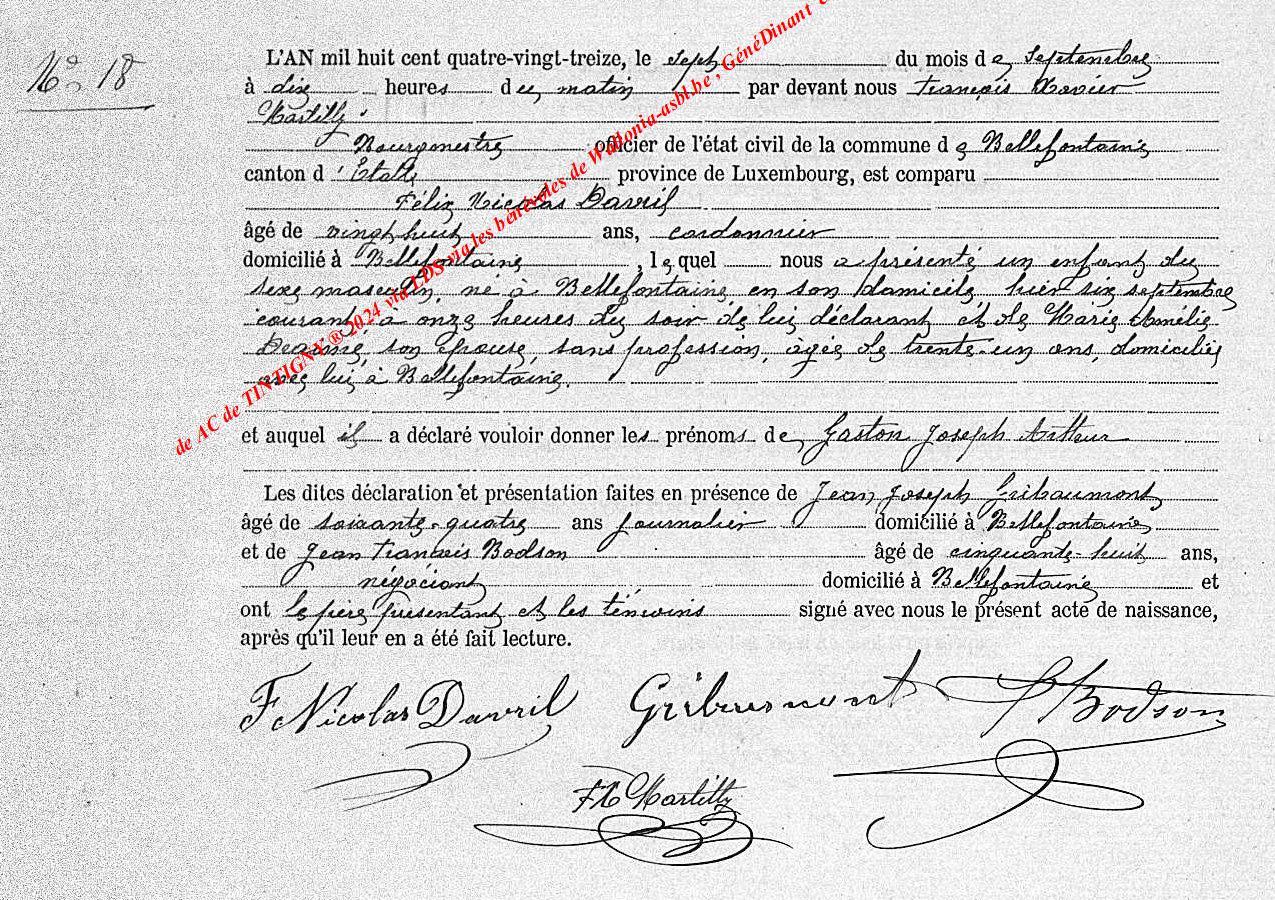 No 18
L'AN mil huit cent quatre-vingt-treize, le sept du mois de Septembre
à dix heures du matin par devant nous François Xavier
Martilly
Bourgmestre officier de l'état civil de la commune de Bellefontaine
canton d'Etalle province de Luxembourg, est comparu
Félix Nicolas Davril
âgé de vingt huit ans, cordonnier
domicilié à Bellefontaine, lequel nous a présenté un enfant du
sexe masculin, né à Bellefontaine, en son domicile, hier six septembre
courant, à onze heures du soir de lui déclarant et de Marie Amélie
son épouse, sans profession, âgée de trente-un ans, domiciliée
avec lui à Bellefontaine.
et auquel il a déclaré vouloir donner les prénoms de Gaston Joseph Arthur
Les dites déclaration et présentation faites en présence de Jean Joseph Gribaumont
âgé de soixante-quatre ans journalier domicilié à Bellefontaine
et de Jean François Bodson âgé de cinquante-huit ans,
négociant domicilié à Bellefontaine et
ont le père présentant et les témoins signé avec nous le présent acte de naissance,
après qu'il leur en a été fait lecture.
F Nicolas Davril Gribaumont Bodson
FX Martilly
de AC de TINTIGNY ® 2024 via LDS via les bénévoles de Wallonia-asbl.be, GénéDinant